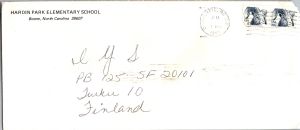 HARDIN PARK ELEMENTARY SCHOOL
Boone, North Carolina 28607
I Y S
PB 125 SF 20101
Turku 10
Finland